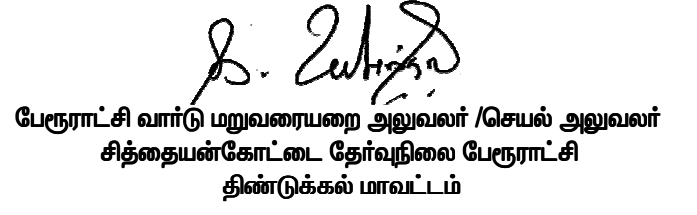 பேரூராட்சி வார்டு மறுவரையறை அலுவலர் /செயல் அலுவலர்
சித்தையன்கோட்டை தேர்வுநிலை பேரூராட்சி
திண்டுக்கல் மாவட்டம்